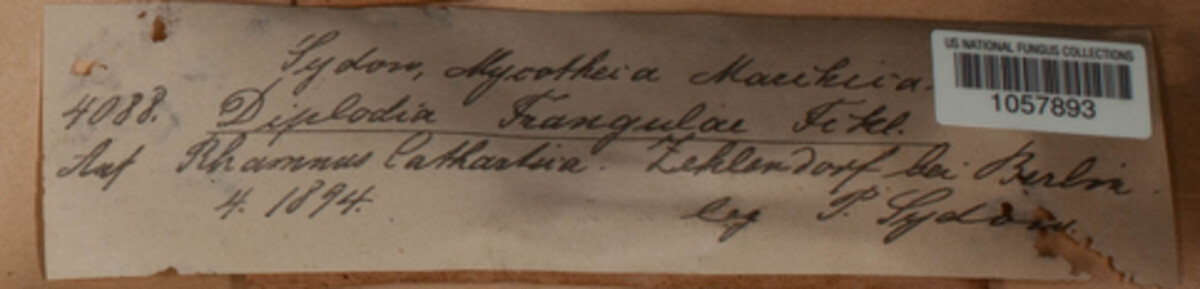 Sydow, Mycotheca Marchica.
US NATIONAL FUNGUS COLLECTIONS
1057893
4088. Diplodia Frangulae Fckl.
Auf Rhamnus Cathartica. Zehlendorf bei Berlin.
4. 1894. leg P. Sydow.